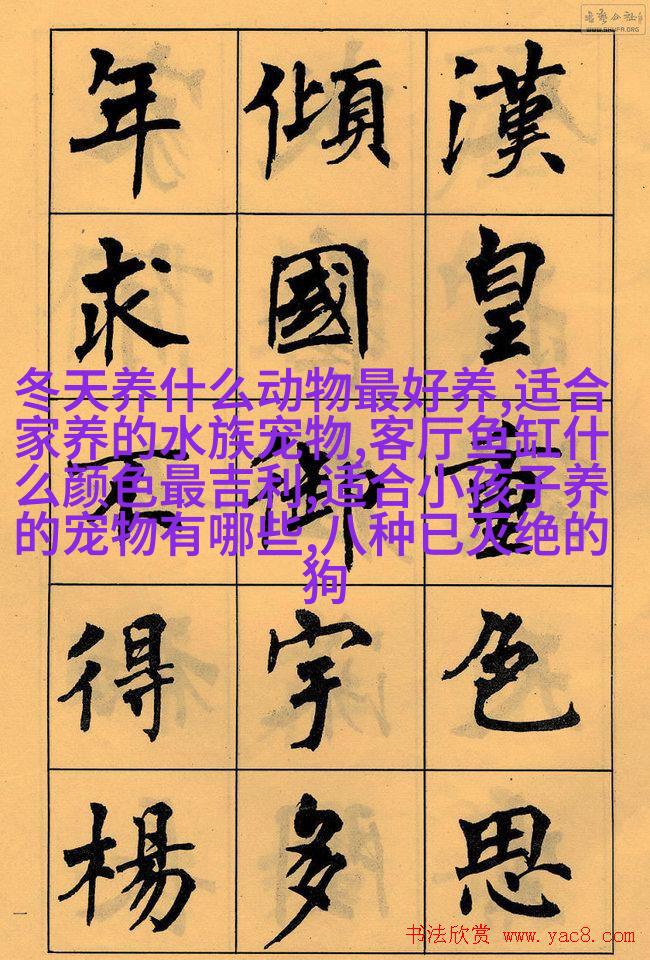 漢皇重色思
傾國御宇多
年求不得楊
冬天养什么动物最好养,适合
家养的水族宠物,客厅鱼缸什
么颜色最吉利,适合小孩子养
的宠物有哪些,八种已灭绝的
狗
一
WWW.SHUFA.ORG
书法欣赏 www.yac8.com